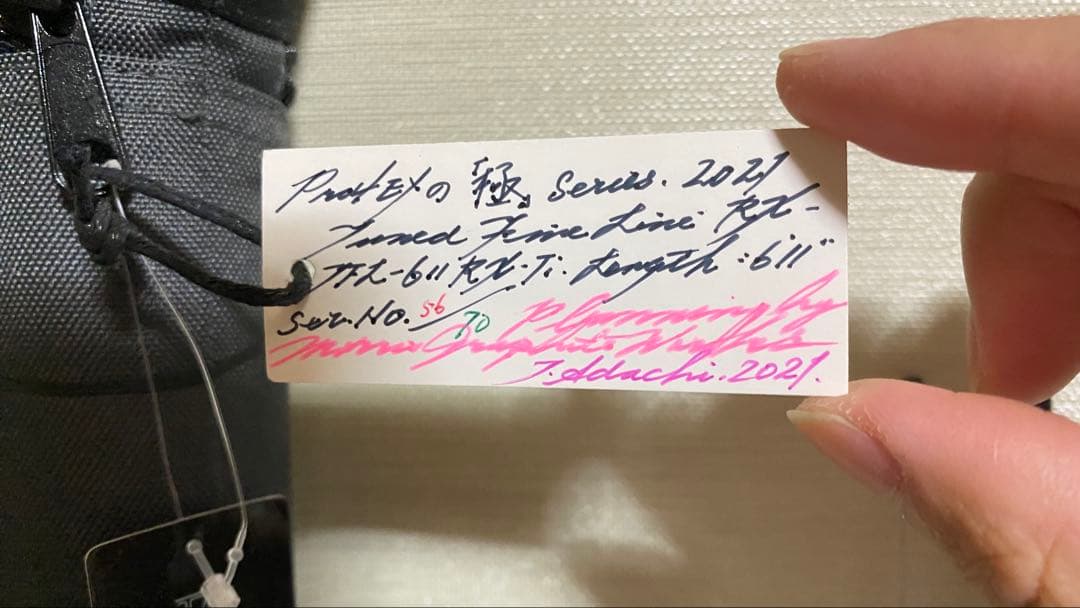 ProfEXの『極』Series. 2021
Tuned Fine Line RX-
TFL-611RX-Ti. Length: 6'11"
Ser. No. 56/70 Planning by
Graphite Works
T. Adachi. 2021.